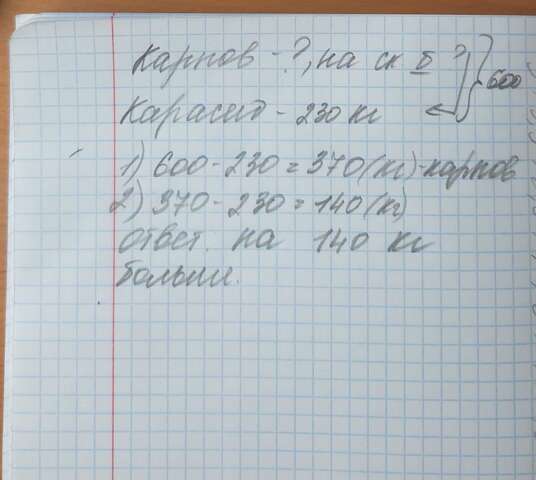 Карпов - ?, на ск б ?
Карасей - 230 кг
600
1) 600 - 230 = 370 (кг) - карпов
2) 370 - 230 = 140 (кг)
ответ. на 140 кг
больше.